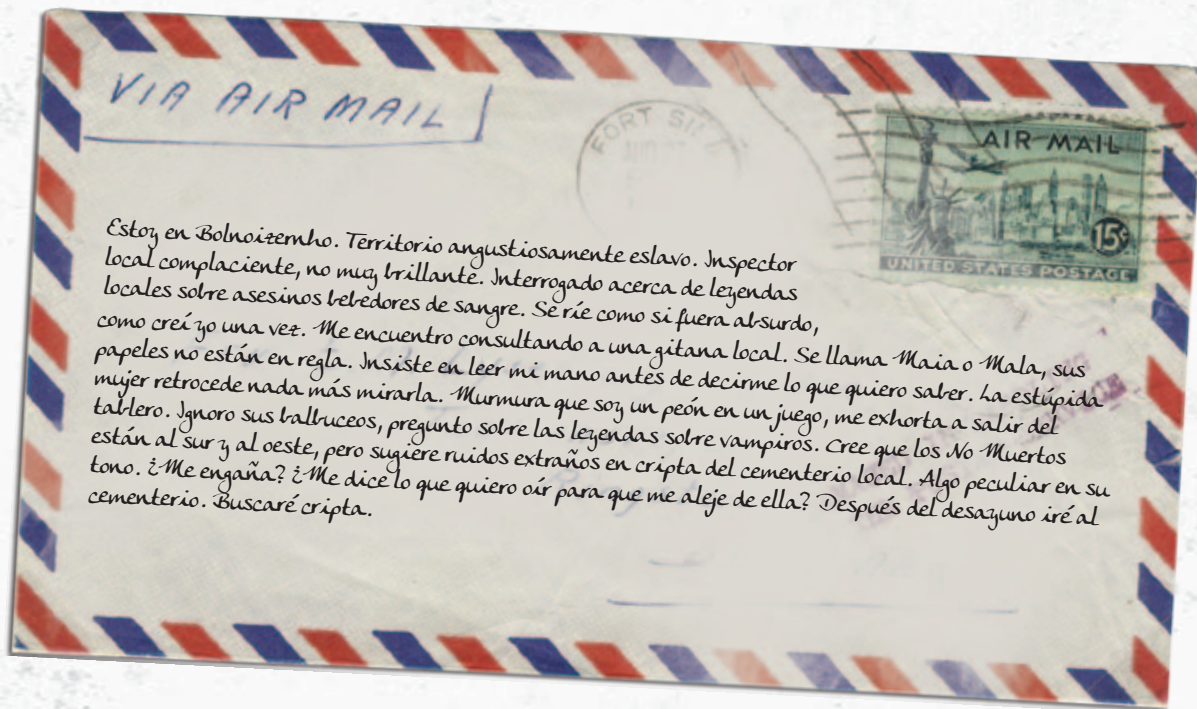 VIA AIR MAIL
FORT
AIR MAIL
15¢
UNITED STATES POSTAGE
Estoy en Bolnoizemho. Territorio angustiosamente eslavo. Inspector
local complaciente, no muy brillante. Interrogado acerca de leyendas
locales sobre asesinos bebedores de sangre. Se ríe como si fuera absurdo,
como creí yo una vez. Me encuentro consultando a una gitana local. Se llama Maia o Mala, sus
papeles no están en regla. Insiste en leer mi mano antes de decirme lo que quiero saber. La estúpida
mujer retrocede nada más mirarla. Murmura que soy un peón en un juego, me exhorta a salir del
tablero. Ignoro sus balbuceos, pregunto sobre las leyendas sobre vampiros. Cree que los No Muertos
están al sur y al oeste, pero sugiere ruidos extraños en cripta del cementerio local. Algo peculiar en su
tono. ¿Me engaña? ¿Me dice lo que quiero oír para que me aleje de ella? Después del desayuno iré al
cementerio. Buscaré cripta.